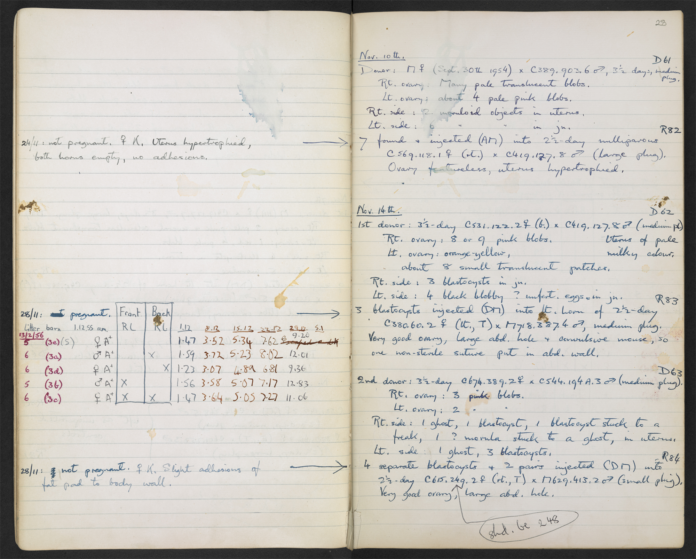 24/11: not pregnant. ♀ K. Uterus hypertrophied,
both horns empty, no adhesions.
28/11: pregnant. Front Back
Litter born 1.12.55 am R L R L 1.12
(5) ♀ A 1.47 3.52 5.34 7.62
6 (3a) ♂ A x 1.59 3.72 5.23 8.02 12.01
6 (3d) ♀ A x 1.73 3.07 9.36
5 (3b) ♂ A x 1.56 3.58 5.07 7.17 12.83
6 (3c) ♀ A x x 1.47 3.64 5.05 7.27 11.06
28/11: not pregnant. ♀ K. Slight adhesions of
fat pad to body wall.
23
Nov. 10th. D61
Donor: M♀ (Sept. 30th 1954) x C389.903.6♂, 3½ days, medium
plug.
Rt. ovary: Many pale translucent blobs.
Lt. ovary: about 4 pale pink blobs.
Rt. side: objects in uterus.
Lt. side: " in jn. R82
7 found & injected (AM) into 2½-day nulliparous
C569.118.1♀ x C419.127.8♂ (large plug).
Ovary featureless, uterus hypertrophied.
Nov. 14th. D62
1st donor: 3½-day C531.122.2♀ x C419.127.8♂ (medium pl)
Rt. ovary: 8 or 9 pink blobs. Uterus of pale
Lt. ovary: orange-yellow, milky colour.
about 8 small translucent patches.
Rt. side: 3 blastocysts in jn.
Lt. side: 4 black blobby ? unfert. eggs in jn. R83
3 blastocysts injected (DM) into Lt. horn of 2½-day
♂, medium plug.
Very good ovary, large abd. hole & convulsive mouse, so
one non-sterile suture put in abd. wall.
D63
2nd donor: 3½-day C674.389.2♀ x C544.194A.3♂ (medium plug).
Rt. ovary: 3 pink blobs.
Lt. ovary: 2 " "
Rt. side: 1 ghost, 1 blastocyst, 1 blastocyst stuck to a
freak, 1 ? morula stuck to a ghost, in uterus.
Lt. side: 1 ghost, 3 blastocysts. R84
4 separate blastocysts & 2 pairs injected (DM) into
2½-day C605.249.2♀ x M629.413.2♂ (small plug).
Very good ovary, large abd. hole.
shd. be 248